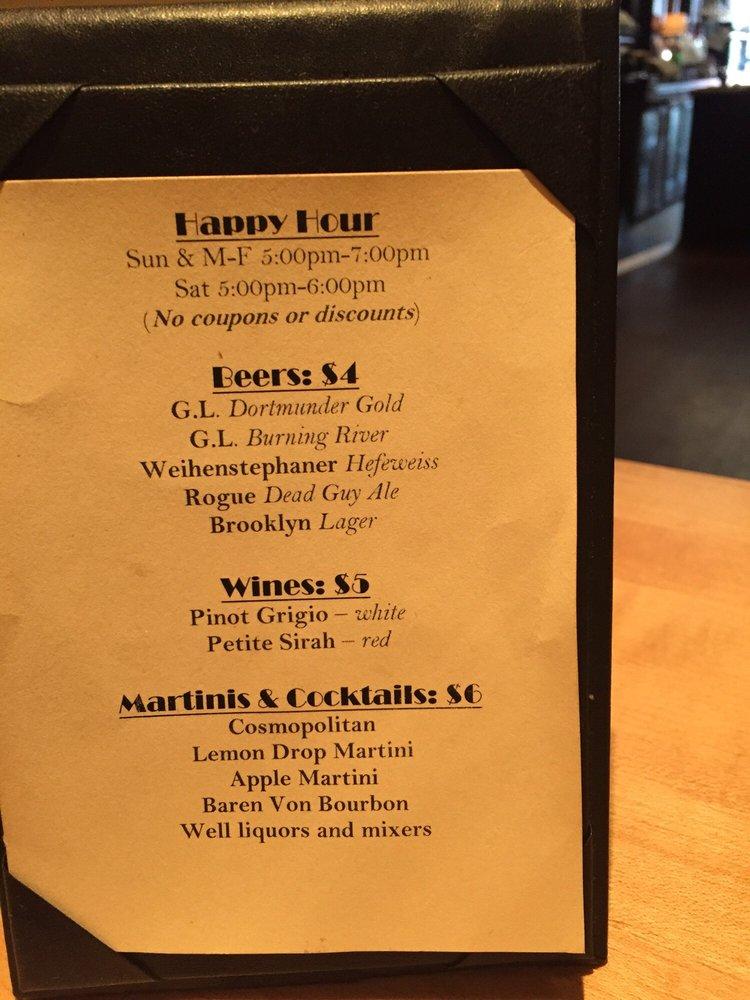 Happy Hour
Sun & M-F 5:00pm-7:00pm
Sat 5:00pm-6:00pm
(No coupons or discounts)
Beers: $4
G.L. Dortmunder Gold
G.L. Burning River
Weihenstephaner Hefeweiss
Rogue Dead Guy Ale
Brooklyn Lager
Wines: $5
Pinot Grigio – white
Petite Sirah – red
Martinis & Cocktails: $6
Cosmopolitan
Lemon Drop Martini
Apple Martini
Baren Von Bourbon
Well liquors and mixers